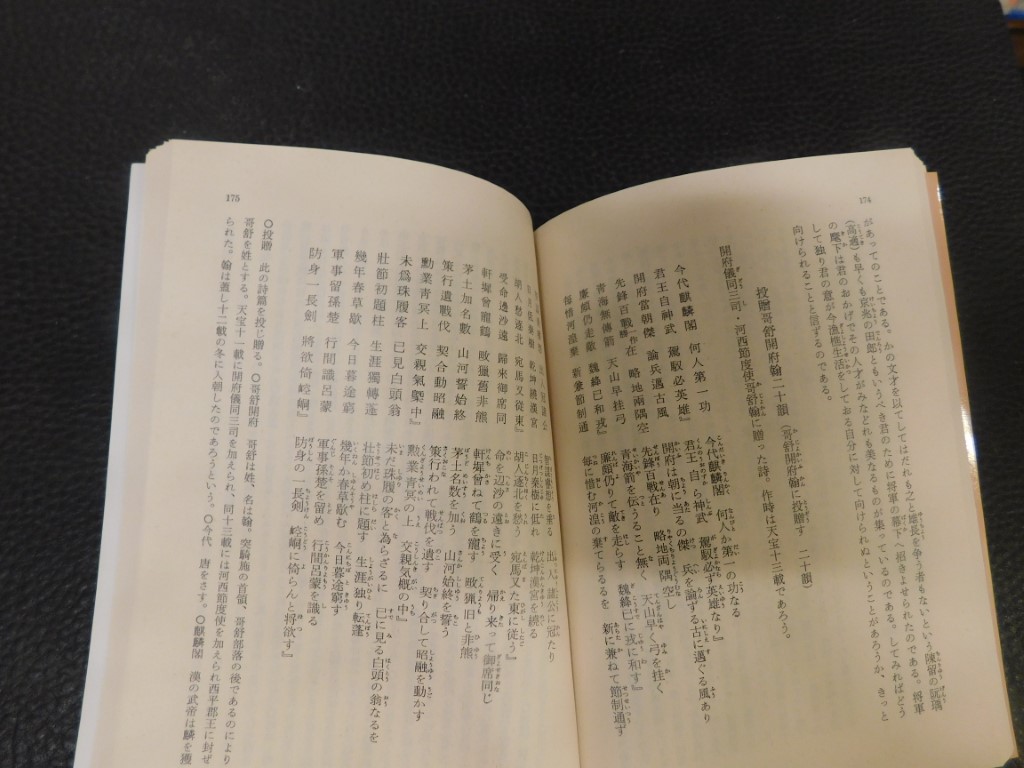 174
があってのことである。かの文才を以てしてはだれも之と塵長を争う者もないという陳留の阮瑀
(高適)も早くも京兆の田郎ともいうべき君のために将軍の幕下へ招きよせられたのである。将軍
の麾下は君のおかげでその人才がみなどれも美なるものが集っているのである。してみればどう
して独り君の意が今漁樵生活をしておる自分に対して向けられぬということがあろうか、きっと
向けられることと思うのである。
投贈哥舒開府翰二十韻 (哥舒開府翰に投贈す 二十韻)
開府儀同三司・河西節度使哥舒翰に贈った詩。作時は天宝十三載であろう。
今代麒麟閣 何人第一功 今代麒麟閣 何人か第一の功なる
君王自神武 駕馭必英雄』 君王自ら神武 駕馭必ず英雄なり』
開府當朝傑 論兵邁古風 開府は朝に当るの傑 兵を論ずる古に邁ぐる風あり
先鋒百戰在 略地兩隅空 先鋒百戦在り 略地両隅空し
青海無傳箭 天山早挂弓 青海箭を伝うること無く 天山早く弓を挂く
廉頗仍走敵 魏絳已和戎』 廉頗仍りて敵を走らす 魏絳已に戎に和す』
每惜河湟棄 新兼節制通 毎に惜む河湟の棄てらるるを 新に兼ねて節制通ず
175
智謀垂睿想 出入冠諸公 智謀睿想を垂る 出入諸公に冠たり
日月低秦樹 乾坤繞漢宮 日月秦樹に低れ 乾坤漢宮を繞る
胡人愁逐北 宛馬又從東』 胡人逐北を愁う 宛馬又た東に従う』
受命邊沙遠 歸來御席同 命を辺沙の遠きに受く 帰り来って御席同じ
軒墀曾寵鶴 畋獵舊非熊 軒墀曾ねて鶴を寵す 畋猟旧と非熊
茅土加名數 山河誓始終 茅土名数を加う 山河始終を誓う
策行遺戰伐 契合動昭融 策行われて戦伐を遺す 契り合して昭融を動かす
勳業青冥上 交親氣槩中』 勲業青冥の上 交親気概の中』
未爲珠履客 已見白頭翁 未だ珠履の客と為らざるに 已に見る白頭の翁なるを
壯節初題柱 生涯獨轉蓬 壮節初め柱に題す 生涯独り転蓬
幾年春草歇 今日暮途窮 幾年か春草歇む 今日暮途窮す
軍事留孫楚 行間識呂蒙 軍事孫楚を留め 行間呂蒙を識る
防身一長劍 將欲倚崆峒』 防身の一長剣 崆峒に倚らんと将欲す』
○投贈 此の詩篇を投じ贈る。○哥舒開府 哥舒は姓、名は翰。突騎施の首領、哥舒部落の後であるのにより
哥舒を姓とする。天宝十一載に開府儀同三司を加えられ、同十二載には河西節度使を加えられ西平郡王に封ぜ
られた。翰は蓋し十二載の冬に入朝したのであろうという。○今代 唐をさす。○麒麟閣 漢の武帝は麟を獲